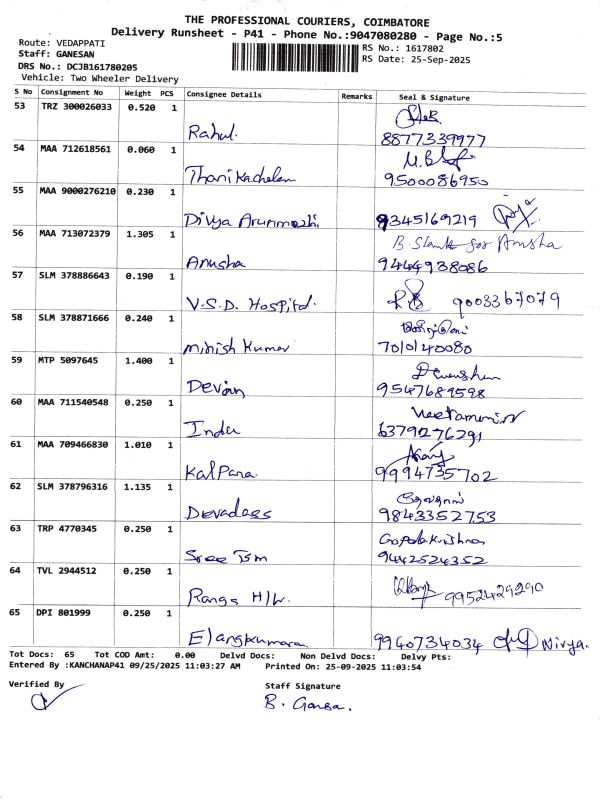 THE PROFESSIONAL COURIERS, COIMBATORE
Delivery Runsheet - P41 - Phone No.:9047080280 - Page No.:5
Route: VEDAPPATI
RS No.: 1617802
Staff: GANESAN
RS Date: 25-Sep-2025
DRS No.: DCJB161780205
Vehicle: Two Wheeler Delivery
S No Consignment No Weight PCS Consignee Details Remarks Seal & Signature
53 TRZ 300026033 0.520 1
Rahul. 8877339977
54 MAA 712618561 0.060 1
Thanikachelam 9500086950
55 MAA 9000276210 0.230 1
Divya Arunmozhi. 9345169219
56 MAA 713072379 1.305 1
for Anusha
Anusha 9444938086
57 SLM 378886643 0.190 1
V.S.D. Hospital. 9003367079
58 SLM 378871666 0.240 1
Minish Kumar 7010140080
59 MTP 5097645 1.400 1
Devan 9547689598
60 MAA 711540548 0.250 1
Indu 6379276291
61 MAA 709466830 1.010 1
Kalpana. 9994735702
62 SLM 378796316 1.135 1
Devadass 9843352753
63 TRP 4770345 0.250 1
Gopalakrishnan
Sree Ism 9442524352
64 TVL 2944512 0.250 1
Ranga H/W. 9952429290
65 DPI 801999 0.250 1
Elangkumaran 9940734034 Nivya.
Tot Docs: 65 Tot COD Amt: 0.00 Delvd Docs: Non Delvd Docs: Delvy Pts:
Entered By :KANCHANAP41 09/25/2025 11:03:27 AM Printed On: 25-09-2025 11:03:54
Verified By Staff Signature
B. Ganesa.